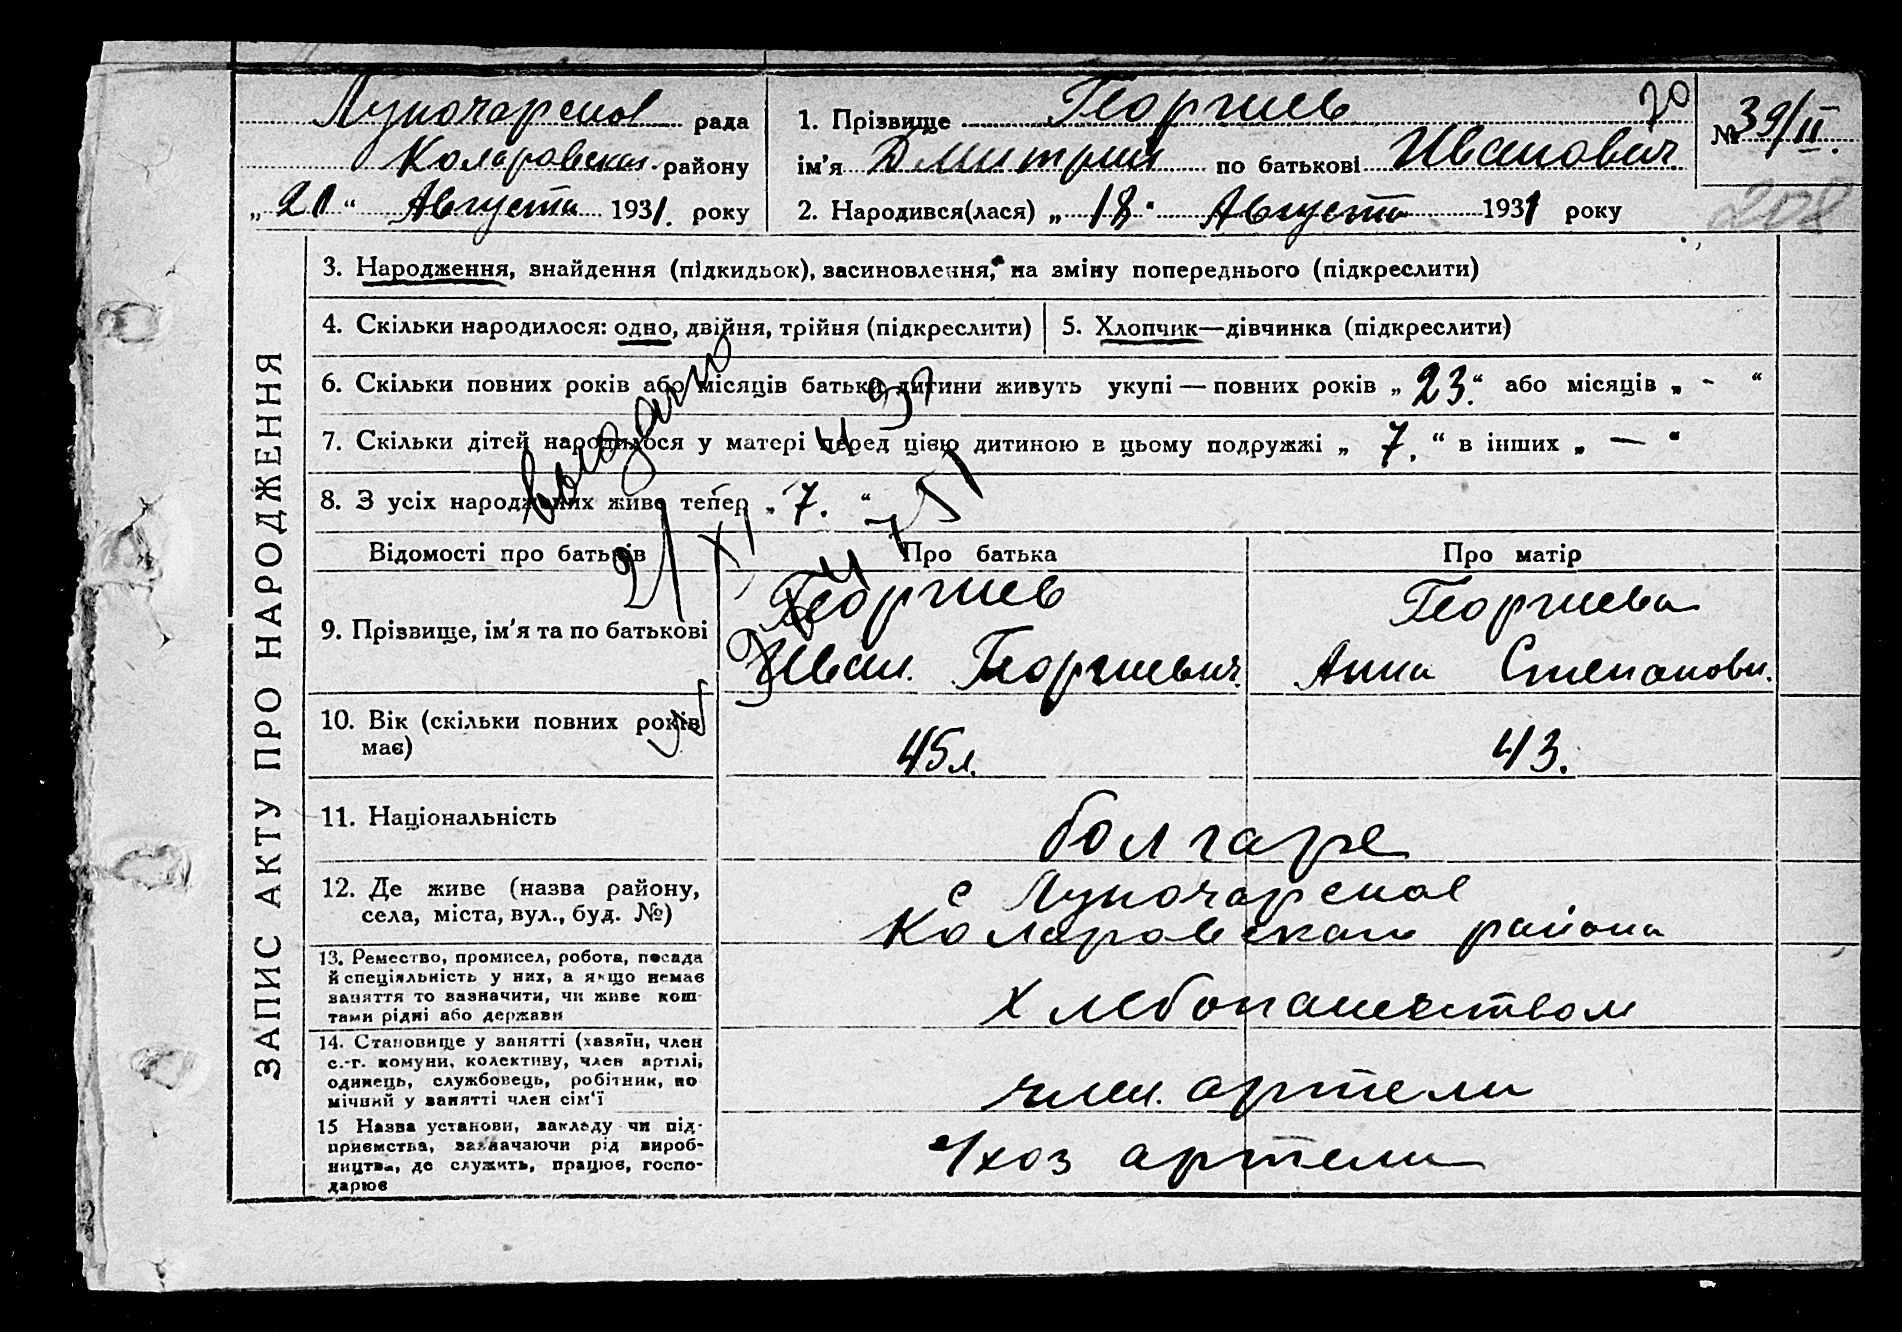 ЗАПИС АКТУ ПРО НАРОДЖЕННЯ
Луночарское рада
Коларовская району
„21“ Августа 1931. року
1. Прізвище Георгиев
ім'я Дмитрий по батькові Иванович
2. Народився(лася) „18“ Августа 1931 року
70
№ 39/II.
208
3. Народження, знайдення (підкидьок), засиновлення, на зміну попереднього (підкреслити)
4. Скільки народилося: одно, двійня, трійня (підкреслити)
5. Хлопчик—дівчинка (підкреслити)
6. Скільки повних років або місяців батьки дитини живуть укупі — повних років „23.“ або місяців „-“
7. Скільки дітей народилося у матері перед цією дитиною в цьому подружжі „7.“ в інших „—“
8. З усіх народжених живе тепер „7.“
Відомості про батьків
Про батька
Про матір
9. Прізвище, ім'я та по батькові
Георгиев
Иван. Георгиевич.
Георгиева
Анна Степановн.
10. Вік (скільки повних років має)
45 л.
43.
11. Національність
болгаре
12. Де живе (назва району,
села, міста, вул., буд. №)
с Луночарское
Коларовского района
13. Ремество, промисел, робота, посада
й спеціяльність у них, а якщо немає
заняття то зазначити, чи живе кош-
тами рідні або держави
Хлебопашеством
14. Становище у занятті (хазяїн, член
с.-г. комуни, колективу, член артілі,
одинець, службовець, робітник, по
мічний у занятті член сім'ї
член. артели
15 Назва установи, закладу чи під-
приємства, зазначаючи рід вироб-
ництва, де служить, працює, госпо-
дарює
артели